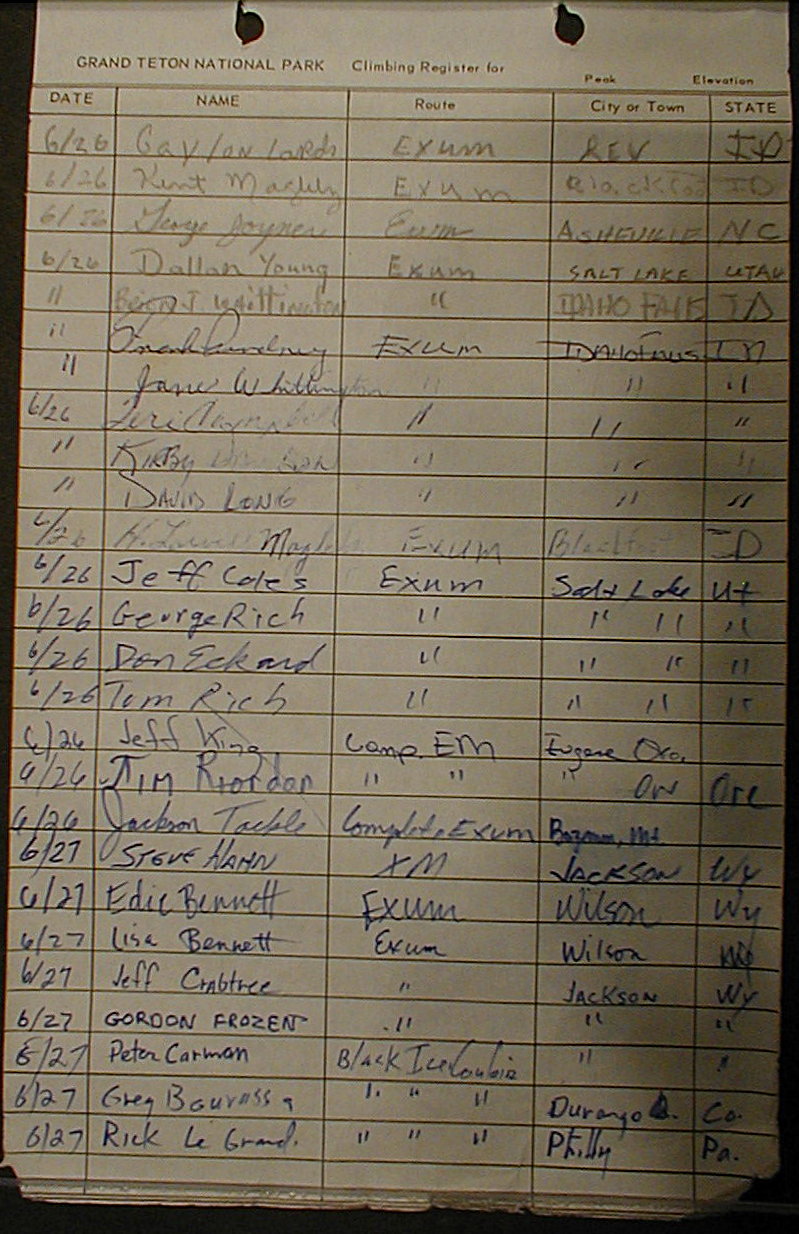 GRAND TETON NATIONAL PARK Climbing Register for
Peak Elevation
DATE NAME Route City or Town STATE
6/26 Gaylon Lords Exum REV ID
6/26 Kent Exum Blackfoot ID
6/26 George Joyner Exum ASHEVILLE NC
6/26 Dallan Young Exum SALT LAKE UTAH
" J Whittington " IDAHO FALLS ID
" EXUM IDAHO FALLS
" Jane Whittington " " "
6/26 Campbell " " "
" KIRBY " " "
" DAVID LONG " " "
6/26 Exum Blackfoot ID
6/26 Jeff Coles Exum Salt Lake Ut
6/26 George Rich " " " "
6/26 Don Eckard " " " "
6/26 Tom Rich " " " "
6/26 Jeff King Comp. EM Eugene Ore.
6/26 TIM Riordon " " " Ore
6/26 Jackson Tackle Complete Exum Mt.
6/27 STEVE HAHN XM JACKSON Wy
6/27 Edie Bennett EXUM WILSON Wy
6/27 Lisa Bennett Exum Wilson
6/27 Jeff Crabtree " JACKSON WY
6/27 GORDON FROZENT " " "
6/27 Peter Carman Black Ice Couloir " "
6/27 Greg Bourassa " " " Durango Co.
6/27 Rick Le Grand. " " " Philly Pa.